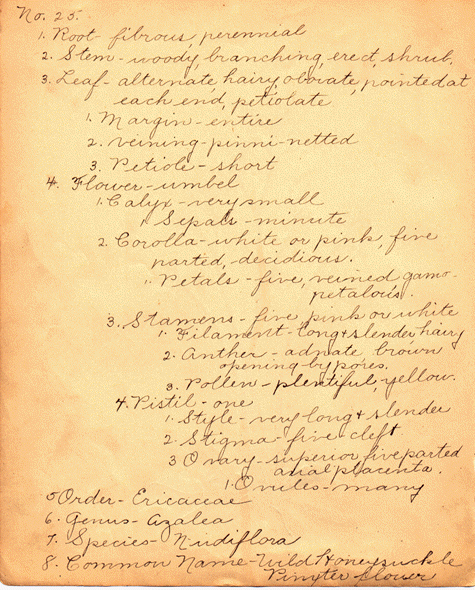 No. 25.
1. Root- fibrous perennial
2. Stem- woody, branching, erect, shrub.
3. Leaf- alternate hairy, obovate, pointed at
each end, petiolate
1. Margin- entire
2. Veining- pinni-netted
3. Petiole- short
4. Flower- umbel
1. Calyx- very small
1. Sepals- minute
2. Corolla- white or pink, five
parted, decidious.
1. Petals- five, veined gamo-
petalous.
3. Stamens- five, pink or white
1. Filament- long & slender hairy
2. Anther- adnate, brown
opening by pores.
3. Pollen- plentiful, yellow.
4. Pistil- one
1. Style- very long & slender
2. Stigma- five cleft
3 Ovary- superior, five parted
axial placenta.
1. Ovules- many
5 Order- Ericaceae
6. Genus- Azalea
7. Species- Nudiflora
8. Common Name- Wild Honeysuckle
Pinxter flower